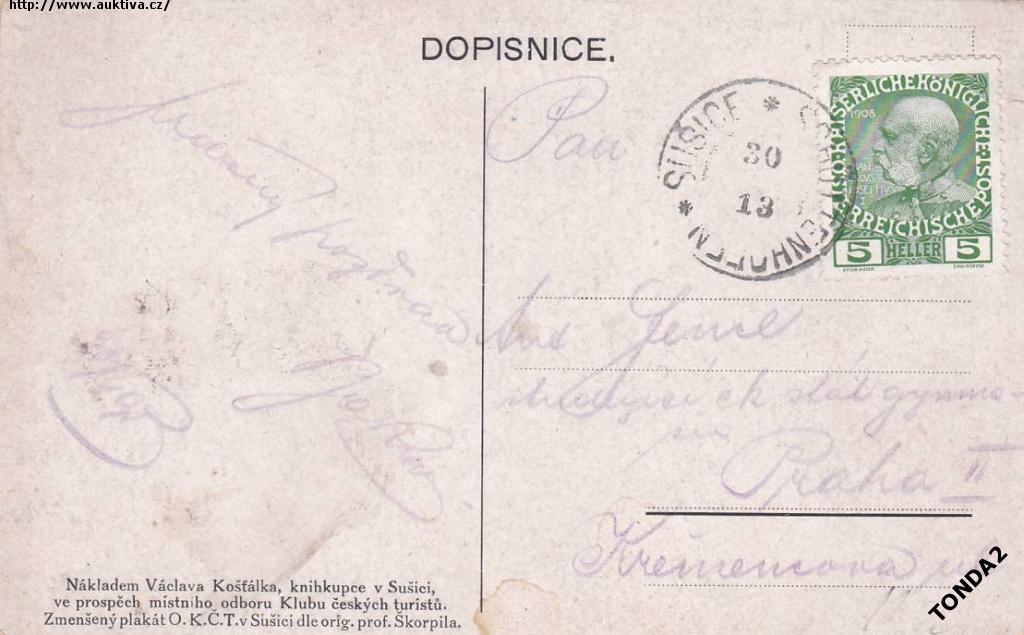 http://www.auktiva.cz/
DOPISNICE.
SUŠICE * SCHÜTTENHOFEN *
30
13
KAISERLICHE KÖNIGLICHE POST
1908
ÖSTERREICHISCHE
5 HELLER 5
Srdečný pozdrav
Pan
Ant
studující ck stát gymna-
Praha II
Křemencova ul
Nákladem Václava Košťálka, knihkupce v Sušici,
ve prospěch místního odboru Klubu českých turistů.
Zmenšený plakát O. K. Č. T. v Sušici dle orig. prof. Škorpila.
TONDA2